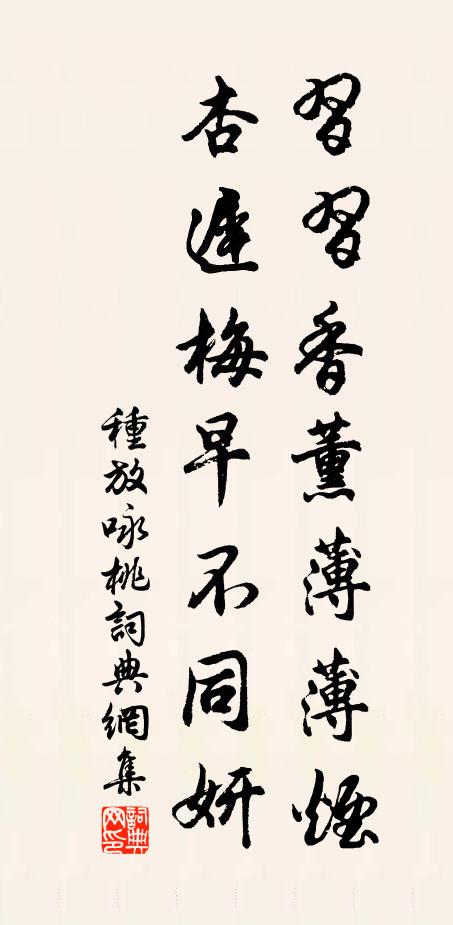 習習香薰薄薄煙
杏遲梅早不同妍
種放咏桃詞典網集
詞典网印